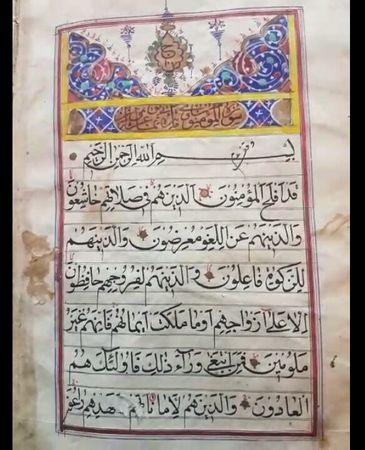 سورة المؤمنون
بسم الله الرحمن الرحيم
قد افلح المؤمنون الذين هم في صلاتهم خاشعون
والذين هم عن اللغو معرضون والذين هم
للزكوة فاعلون والذين هم لفروجهم حافظون
الا على ازواجهم او ما ملكت ايمانهم فانهم غير
ملومين فمن ابتغى ورآء ذلك فاولئك هم
العادون والذين هم لاماناتهم